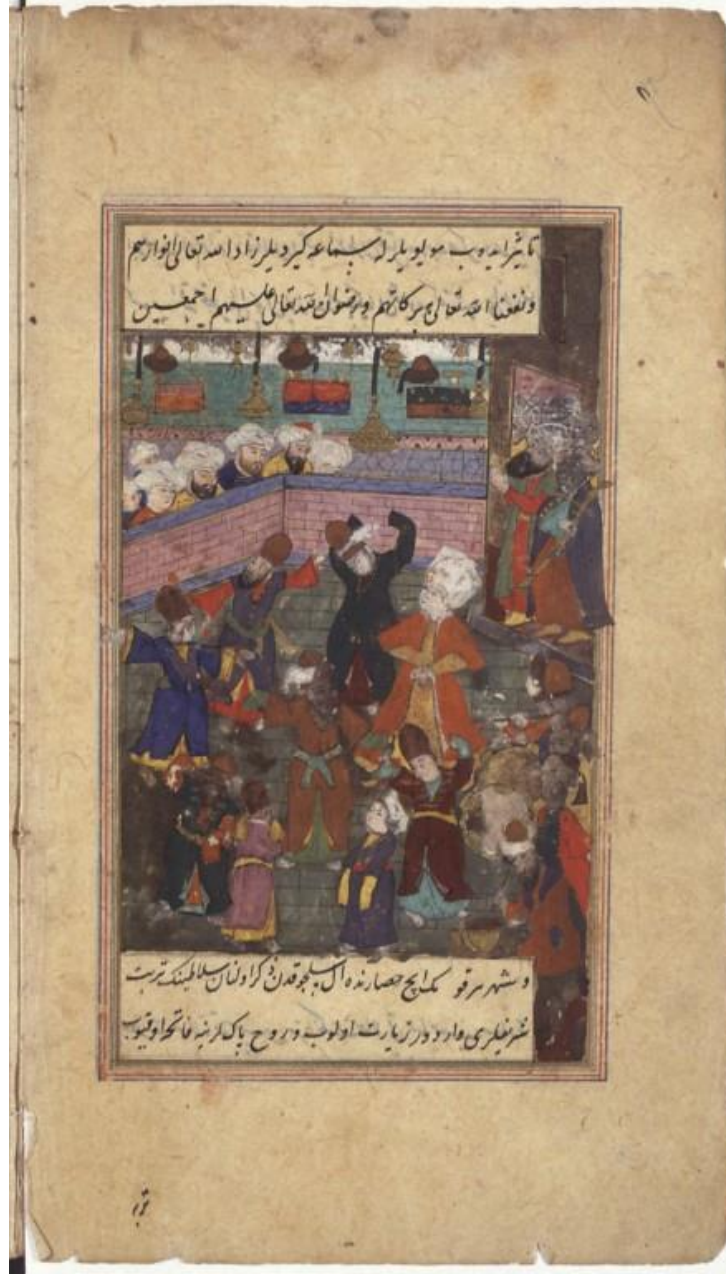 تاثیر ایدوب مولویلرله سماعه کیردیلر زاد الله تعالی انوارهم
ونفعنا الله تعالی ببرکاتهم ورضوان الله تعالی علیهم اجمعین
وشهر مرقومک ایچ حصارنده آل سلجوقدن ذکر اولنان سلاطینک تربت
شریفلری واردور زیارت اولوب وروح پاکلرینه فاتحه اوقیوب